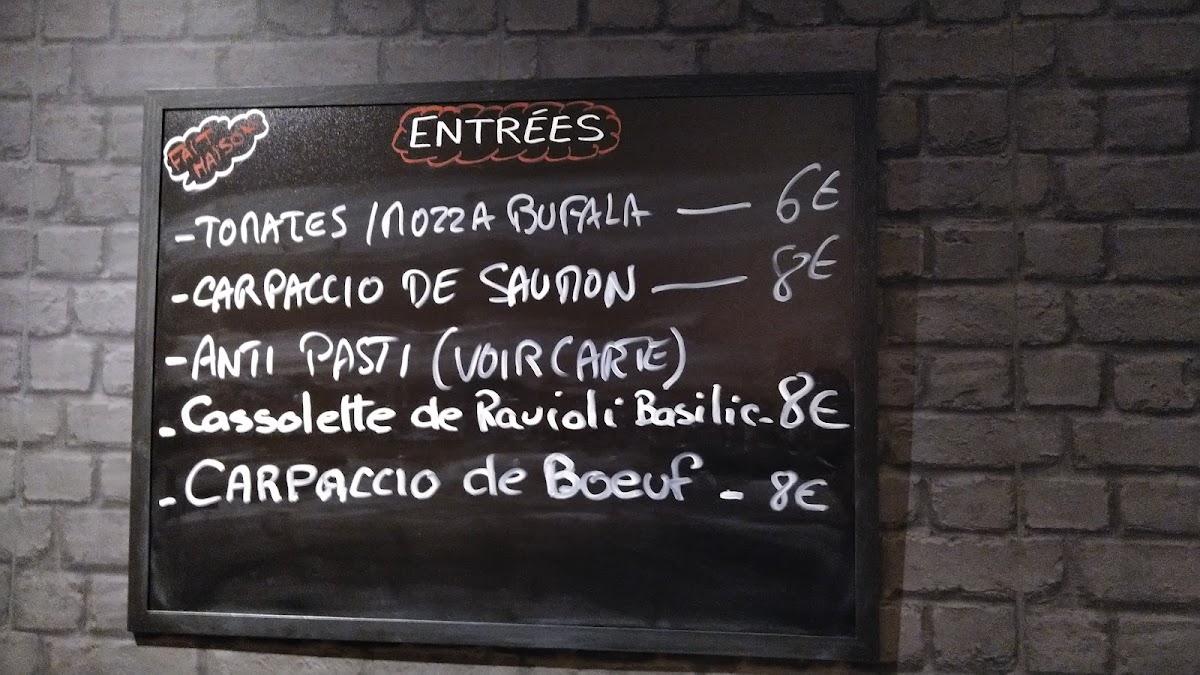 FAIT
MAISON
ENTRÉES
- TOMATES / MOZZA BUFALA — 6€
- CARPACCIO DE SAUMON — 8€
- ANTI PASTI (VOIR CARTE)
- Cassolette de Ravioli Basilic - 8€
- CARPACCIO de Boeuf - 8€